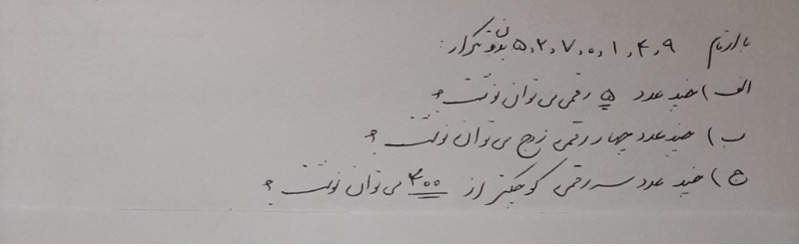 با ارقام ۵،۲،۷،۰،۱،۴،۹ بدون تکرار:
الف) چند عدد ۵ رقمی می توان نوشت؟
ب) چند عدد چهار رقمی زوج می توان نوشت؟
ج) چند عدد سه رقمی کوچکتر از ۴۰۰ می توان نوشت؟